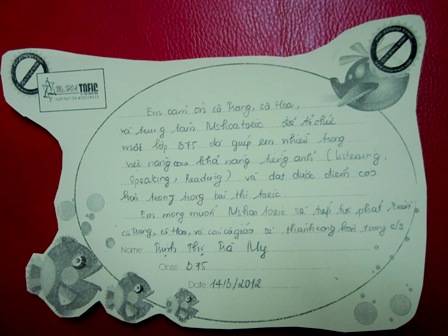 Ms Hoa TOEIC
Em cảm ơn cô Trang, cô Hoa,
và trung tâm Mshoatoeic đã tổ chức
một lớp B75 đã giúp em nhiều trong
việc nâng cao khả năng tiếng anh (listening,
Speaking, Reading) và đạt được điểm cao
hơn trong bài thi toeic.
Em mong muốn Mshoa toeic sẽ tiếp tục phát triển
cô Trang, cô Hoa, và các cô giáo sẽ thành công hơn trong c/s
Name Trịnh Thị Trà My
Class B75
Date 14/3/2012